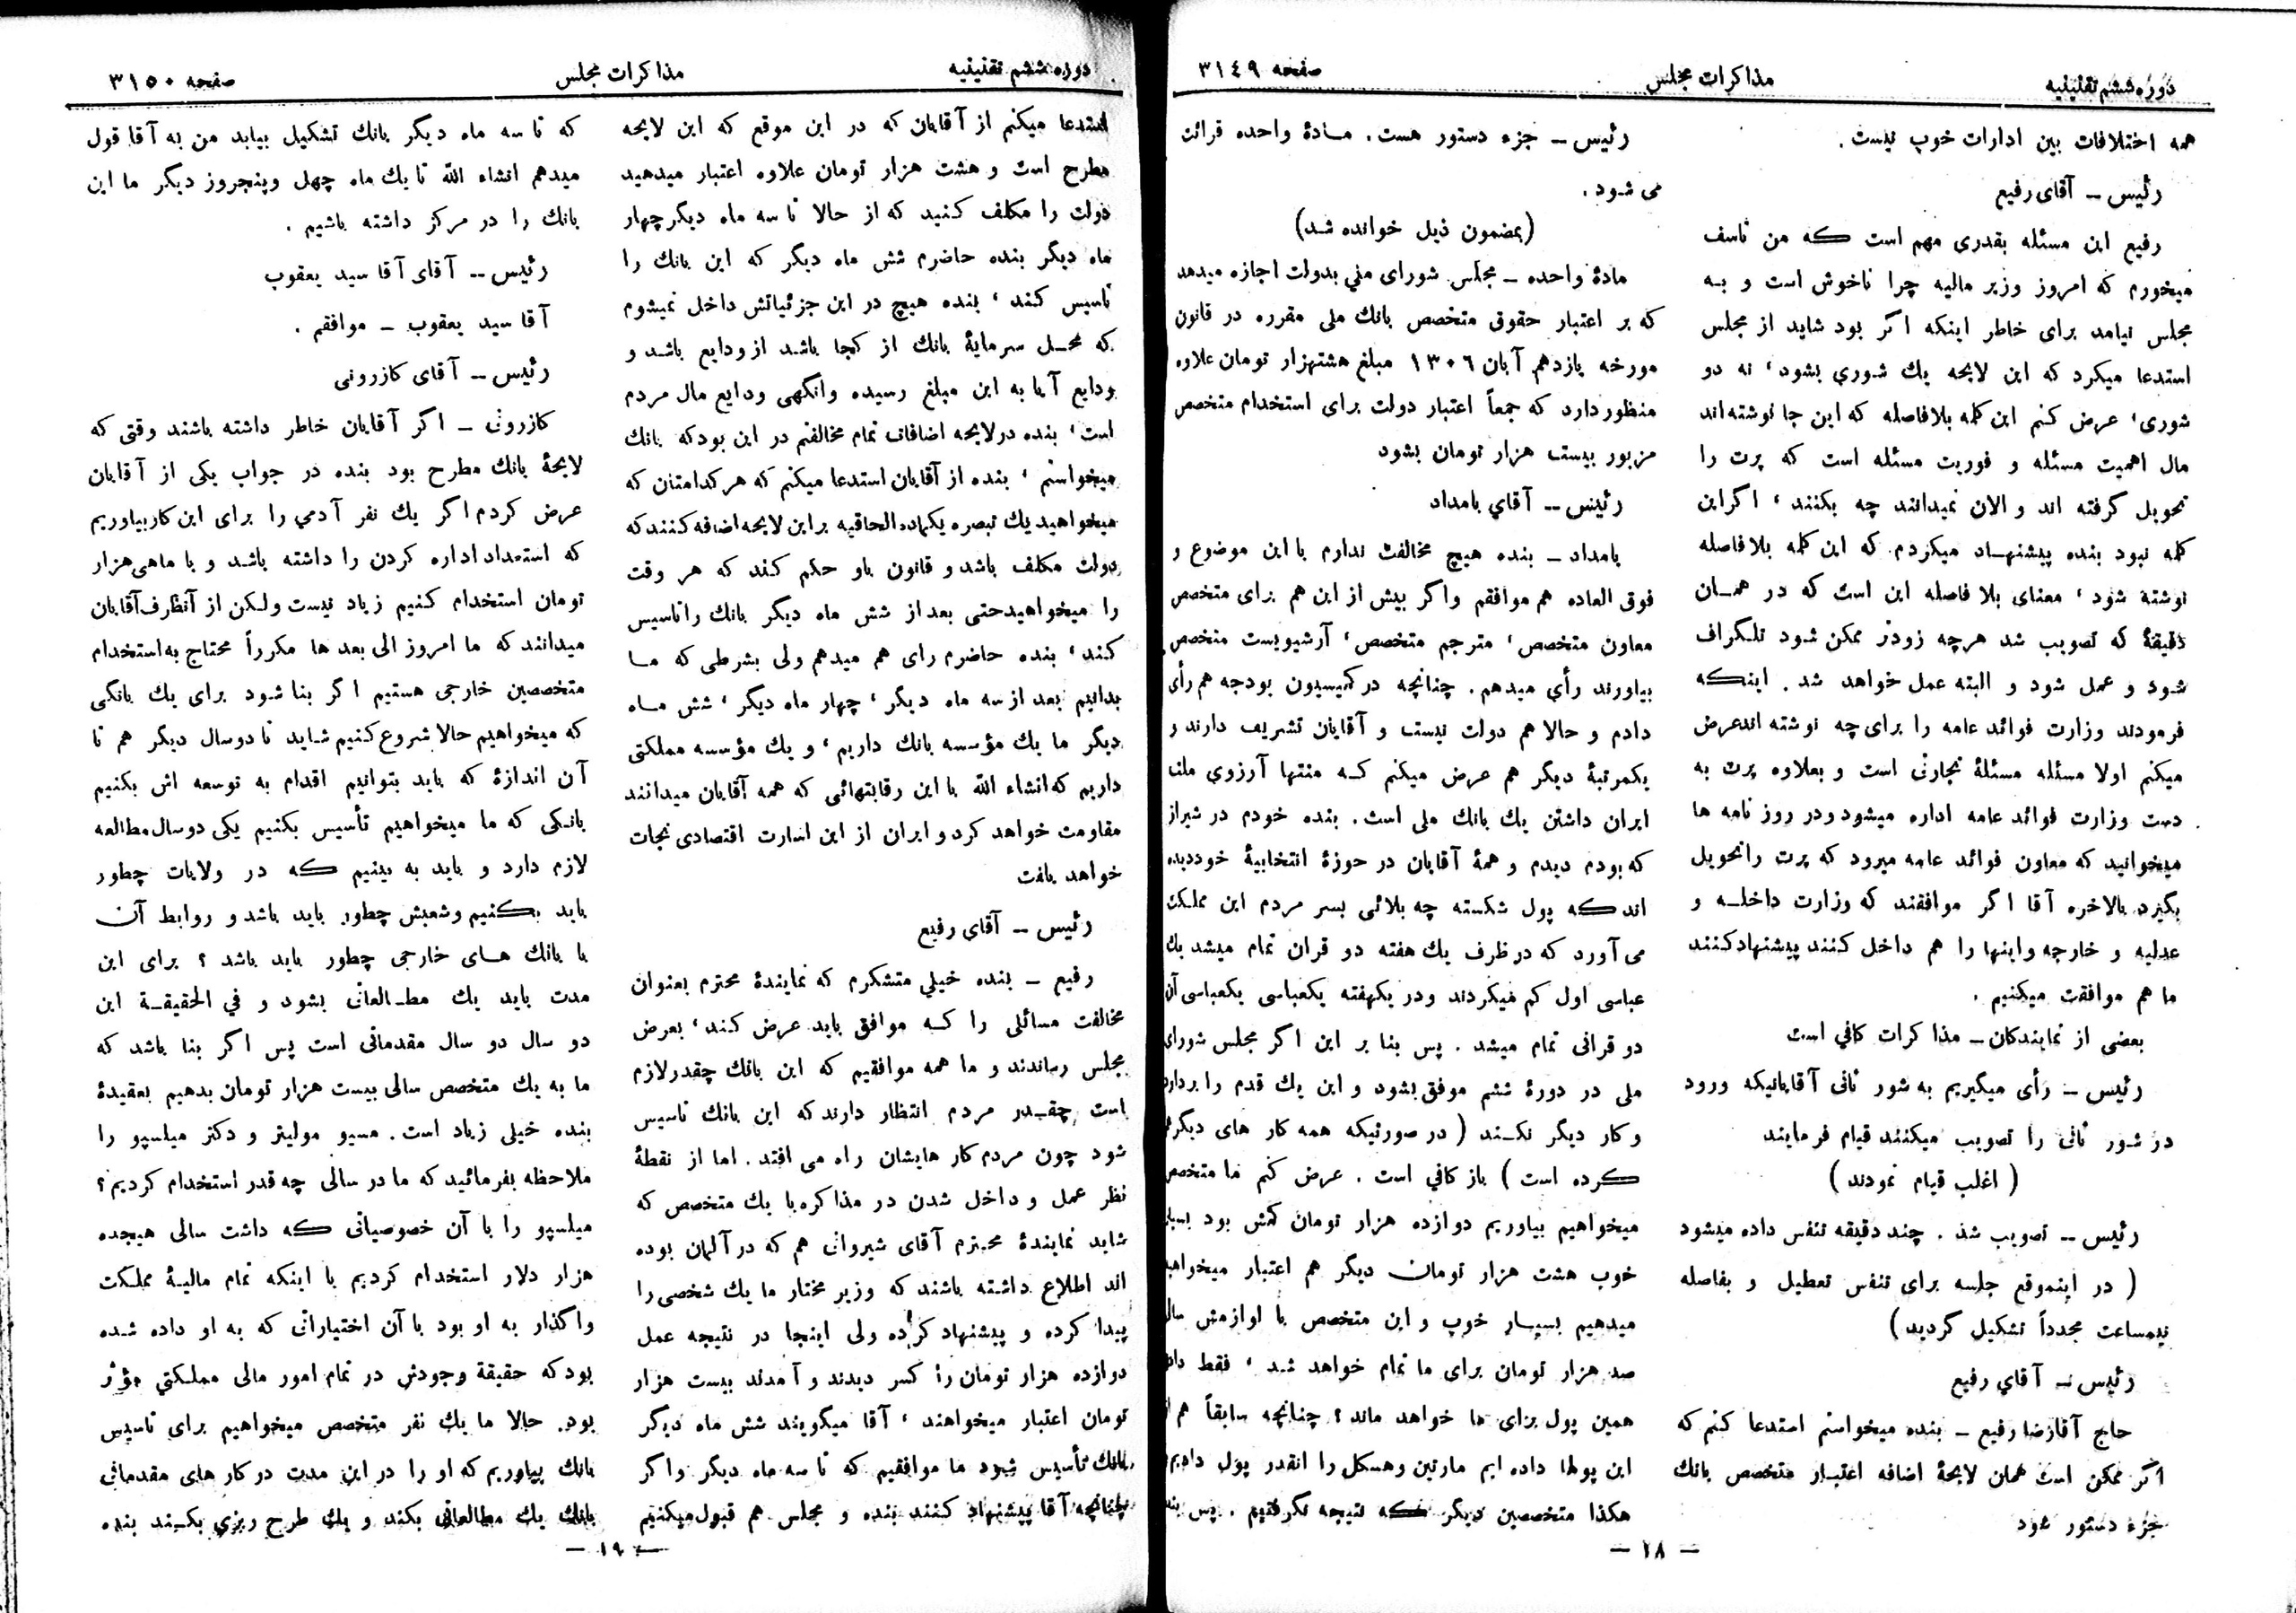 دوره ششم تقنینیه
مذاکرات مجلس
صفحه ۳۱٤۹
همه اختلافات بین ادارات خوب نیست .
رئیس ــ آقای رفیع
رفیع این مسئله بقدری مهم است که من تاسف
میخورم که امروز وزیر مالیه چرا ناخوش است و به
مجلس نیامد برای خاطر اینکه اگر بود شاید از مجلس
استدعا میکرد که این لایحه یك شوری بشود ، نه دو
شوری ، عرض کنم این کلمه بلافاصله که این جا نوشته اند
مال اهمیت مسئله و فوریت مسئله است که پرت را
تحویل گرفته اند و الان نمیدانند چه بکنند ، اگر این
کلمه نبود بنده پیشنهاد میکردم که این کلمه بلافاصله
نوشته شود ، معنای بلا فاصله این است که در همان
دقیقهٔ که تصویب شد هرچه زودتر ممکن شود تلگراف
شود و عمل شود و البته عمل خواهد شد . اینکه
فرمودند وزارت فوائد عامه را برای چه نوشته اند عرض
میکنم اولا مسئله مسئلهٔ تجارتی است و بعلاوه پرت به
دست وزارت فوائد عامه اداره میشود و در روز نامه ها
میخوانید که معاون فوائد عامه میرود که پرت را تحویل
بگیرد بالاخره آقا اگر موافقند که وزارت داخله و
عدلیه و خارجه و اینها را هم داخل کنند پیشنهاد کنند
ما هم موافقت میکنیم .
بعضی از نمایندکان ــ مذاکرات کافی است
رئیس ــ رأی میگیریم به شور ثانی آقایانیکه ورود
در شور ثانی را تصویب میکنند قیام فرمایند
( اغلب قیام نمودند )
رئیس ــ تصویب شد . چند دقیقه تنفس داده میشود
( در اینموقع جلسه برای تنفس تعطیل و بفاصله
نیمساعت مجدداً تشکیل گردید )
رئیس ــ آقای رفیع
حاج آقا رضا رفیع ــ بنده میخواستم استدعا کنم که
اگر ممکن است همان لایحهٔ اضافه اعتبار متخصص بانك
جزء دستور شود
رئیس ــ جزء دستور هست . مادهٔ واحده قرائت
می شود .
(بمضمون ذیل خوانده شد)
مادهٔ واحده ــ مجلس شورای ملی بدولت اجازه میدهد
که بر اعتبار حقوق متخصص بانك ملی مقرره در قانون
مورخه یازدهم آبان ۱۳۰٦ مبلغ هشتهزار تومان علاوه
منظور دارد که جمعاً اعتبار دولت برای استخدام متخصص
مزبور بیست هزار تومان بشود
رئیس ــ آقای بامداد
بامداد ــ بنده هیچ مخالفت ندارم با این موضوع و
فوق العاده هم موافقم و اگر بیش از این هم برای متخصص
معاون متخصص ، مترجم متخصص ، آرشیویست متخصص
بیاورند رأی میدهم . چنانچه در کمیسیون بودجه هم رأی
دادم و حالا هم دولت نیست و آقایان تشریف دارند و
یکمرتبهٔ دیگر هم عرض میکنم که منتها آرزوی ملت
ایران داشتن یك بانك ملی است . بنده خودم در شیراز
که بودم دیدم و همهٔ آقایان در حوزهٔ انتخابیهٔ خود دیده
اند که پول شکسته چه بلائی بسر مردم این مملکت
می آورد که در ظرف یك هفته دو قران تمام میشد یك
عباسی اول کم میکردند و در یکهفته یکعباسی یکعباسی آن
دو قرانی تمام میشد . پس بنا بر این اگر مجلس شورای
ملی در دورهٔ ششم موفق بشود و این یك قدم را بردارد
و کار دیگر نکند ( در صورتیکه همه کار های دیگر
کرده است ) باز کافی است . عرض کنم ما متخصص
میخواهیم بیاوریم دوازده هزار تومان کمش بود بسیار
خوب هشت هزار تومان دیگر هم اعتبار میخواهید
میدهیم بسیار خوب و این متخصص با لوازمش سال
صد هزار تومان برای ما تمام خواهد شد ، فقط
همین پول برای ما خواهد ماند ؟ چنانچه سابقاً هم از
این پولها داده ایم مارتین وهسکل را انقدر پول دادیم
هکذا متخصصین دیگر که نتیجه نگرفتیم . پس بنده
ــ ۱۸ ــ
دوره ششم تقنینیه
مذاکرات مجلس
صفحه ۳۱۵۰
استدعا میکنم از آقایان که در این موقع که این لایحه
مطرح است و هشت هزار تومان علاوه اعتبار میدهید
دولت را مکلف کنید که از حالا تا سه ماه دیگر چهار
ماه دیگر بنده حاضرم شش ماه دیگر که این بانك را
تاسیس کند ، بنده هیچ در این جزئیاتش داخل نمیشوم
که محل سرمایهٔ بانك از کجا باشد از ودایع باشد و
ودایع آیا به این مبلغ رسیده وانگهی ودایع مال مردم
است ، بنده در لایحه اضافات تمام مخالفتم در این بود که بانك
میخواستم ، بنده از آقایان استدعا میکنم که هر کدامتان که
میخواهید یك تبصره یکماده الحاقیه بر این لایحه اضافه کنند که
دولت مکلف باشد و قانون باو حکم کند که هر وقت
را میخواهید حتی بعد از شش ماه دیگر بانك را تاسیس
کند ، بنده حاضرم رای هم میدهم ولی بشرطی که ما
بدانیم بعد از سه ماه دیگر ، چهار ماه دیگر ، شش ماه
دیگر ما یك مؤسسه بانك داریم ، و یك مؤسسه مملکتی
داریم که انشاء الله با این رقابتهائی که همه آقایان میدانند
مقاومت خواهد کرد و ایران از این اسارت اقتصادی نجات
خواهد یافت
رئیس ــ آقای رفیع
رفیع ــ بنده خیلی متشکرم که نمایندهٔ محترم بعنوان
مخالفت مسائلی را که موافق باید عرض کند ، بعرض
مجلس رساندند و ما همه موافقیم که این بانك چقدر لازم
است چقدر مردم انتظار دارند که این بانك تاسیس
شود چون مردم کار هایشان راه می افتد . اما از نقطهٔ
نظر عمل و داخل شدن در مذاکره با یك متخصص که
شاید نمایندهٔ محترم آقای شیروانی هم که در آلمان بوده
اند اطلاع داشته باشند که وزیر مختار ما یك شخصی را
پیدا کرده و پیشنهاد کرده ولی اینجا در نتیجه عمل
دوازده هزار تومان را کسر دیدند و آمدند بیست هزار
تومان اعتبار میخواهند ، آقا میگویند شش ماه دیگر
بانك تأسیس شود ما موافقیم که تا سه ماه دیگر و اگر
چنانچه آقا پیشنهاد کنند بنده و مجلس هم قبول میکنیم
که تا سه ماه دیگر بانك تشکیل بیابد من به آقا قول
میدهم انشاء الله تا یك ماه چهل و پنجروز دیگر ما این
بانك را در مرکز داشته باشیم .
رئیس ــ آقای آقا سید یعقوب
آقا سید یعقوب ــ موافقم .
رئیس ــ آقای کازرونی
کازرونی ــ اگر آقایان خاطر داشته باشند وقتی که
لایحهٔ بانك مطرح بود بنده در جواب یکی از آقایان
عرض کردم اگر یك نفر آدمی را برای این کار بیاوریم
که استعداد اداره کردن را داشته باشد و با ماهی هزار
تومان استخدام کنیم زیاد نیست ولکن از آنطرف آقایان
میدانند که ما امروز الی بعد ها مکرراً محتاج به استخدام
متخصصین خارجی هستیم اگر بنا شود برای یك بانکی
که میخواهیم حالا شروع کنیم شاید تا دو سال دیگر هم تا
آن اندازهٔ که باید بتوانیم اقدام به توسعه اش بکنیم
بانکی که ما میخواهیم تأسیس بکنیم یکی دو سال مطالعه
لازم دارد و باید به بینیم که در ولایات چطور
باید بکنیم و شعبش چطور باید باشد و روابط آن
با بانك های خارجی چطور باید باشد ؟ برای این
مدت باید یك مطالعاتی بشود و فی الحقیقة این
دو سال دو سال مقدماتی است پس اگر بنا باشد که
ما به یك متخصص سالی بیست هزار تومان بدهیم بعقیدهٔ
بنده خیلی زیاد است . مسیو مولیتر و دکتر میلسپو را
ملاحظه بفرمائید که ما در سالی چه قدر استخدام کردیم ؟
میلسپو را با آن خصوصیاتی که داشت سالی هیجده
هزار دلار استخدام کردیم با اینکه تمام مالیهٔ مملکت
واگذار به او بود با آن اختیاراتی که به او داده شده
بود که حقیقة وجودش در تمام امور مالی مملکتی مؤثر
بود . حالا ما یك نفر متخصص میخواهیم برای تاسیس
بانك بیاوریم که او را در این مدت در کار های مقدماتی
بانك یك مطالعاتی بکند و یك طرح ریزی بکند بنده
ــ ۱۹ ــ